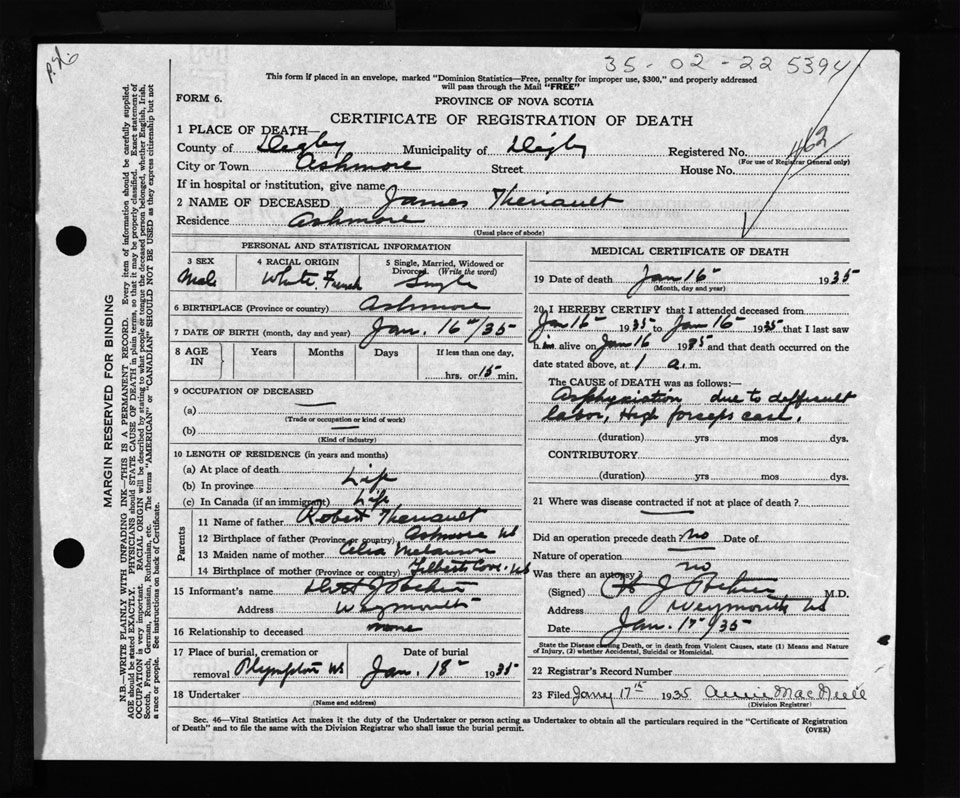 35-02-22 5394
This form if placed in an envelope, marked "Dominion Statistics—Free, penalty for improper use, $300," and properly addressed
will pass through the Mail "FREE"
FORM 6.
PROVINCE OF NOVA SCOTIA
CERTIFICATE OF REGISTRATION OF DEATH
1 PLACE OF DEATH—
County of Digby Municipality of Digby Registered No. 462
(For use of Registrar General only)
City or Town Ashmore Street House No.
If in hospital or institution, give name
2 NAME OF DECEASED James Theriault
Residence Ashmore
(Usual place of abode)
PERSONAL AND STATISTICAL INFORMATION
3 SEX 4 RACIAL ORIGIN 5 Single, Married, Widowed or
Divorced (Write the word)
Male White, French Single
6 BIRTHPLACE (Province or country) Ashmore
7 DATE OF BIRTH (month, day and year) Jan. 16th/35
8 AGE IN Years Months Days If less than one day,
hrs. or 15 min.
9 OCCUPATION OF DECEASED
(a)
(Trade or occupation or kind of work)
(b)
(Kind of industry)
10 LENGTH OF RESIDENCE (in years and months)
(a) At place of death
(b) In province Life
(c) In Canada (if an immigrant) Life
Parents
11 Name of father Robert Theriault
12 Birthplace of father (Province or country) Ashmore NS
13 Maiden name of mother Celia Melanson
14 Birthplace of mother (Province or country) Gilberts Cove. NS
15 Informant's name
Address Weymouth
16 Relationship to deceased none
17 Place of burial, cremation or removal Plympton NS
Date of burial Jan. 18th 1935
18 Undertaker
(Name and address)
MEDICAL CERTIFICATE OF DEATH
19 Date of death Jan 16th 1935
(Month, day and year)
20 I HEREBY CERTIFY that I attended deceased from
Jan 16th 1935 to Jan 16th 1935 that I last saw
him alive on Jan 16 1935 and that death occurred on the
date stated above, at 1 a.m.
The CAUSE of DEATH was as follows:—
Asphyxiation due to difficult
labor, High forceps case.
(duration) yrs. mos. dys.
CONTRIBUTORY
(duration) yrs. mos. dys.
21 Where was disease contracted if not at place of death?
Did an operation precede death? No Date of
Nature of operation
Was there an autopsy? no
(Signed) H J M.D.
Address Weymouth NS
Date Jan. 17th/35
State the Disease causing Death, or in death from Violent Causes, state (1) Means and Nature
of Injury, (2) whether Accidental, Suicidal or Homicidal.
22 Registrar's Record Number
23 Filed Jany 17th 1935 Annie MacNeill
(Division Registrar)
Sec. 46—Vital Statistics Act makes it the duty of the Undertaker or person acting as Undertaker to obtain all the particulars required in the "Certificate of Registration
of Death" and to file the same with the Division Registrar who shall issue the burial permit.
(OVER)
MARGIN RESERVED FOR BINDING
N.B.—WRITE PLAINLY WITH UNFADING INK—THIS IS A PERMANENT RECORD. Every item of information should be carefully supplied.
AGE should be stated EXACTLY. PHYSICIANS should STATE CAUSE OF DEATH in plain terms, so that it may be properly classified. Exact statement of
OCCUPATION is very important. RACIAL ORIGIN will be described by stating to what people or tongue the deceased person belonged, whether English, Irish,
Scotch, French, German, Russian, Ruthenian, etc. The terms "AMERICAN" or "CANADIAN" SHOULD NOT BE USED as they express citizenship but not
a race or people. See instructions on back of Certificate.